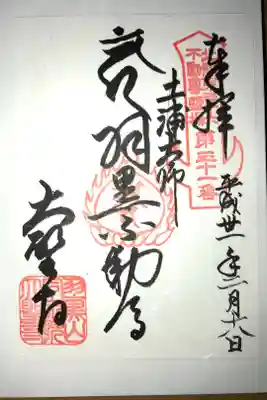 奉拝
平成廿一年二月十八日
不動尊霊場
第三十一番
土浦大師
羽黒不動尊
大聖寺